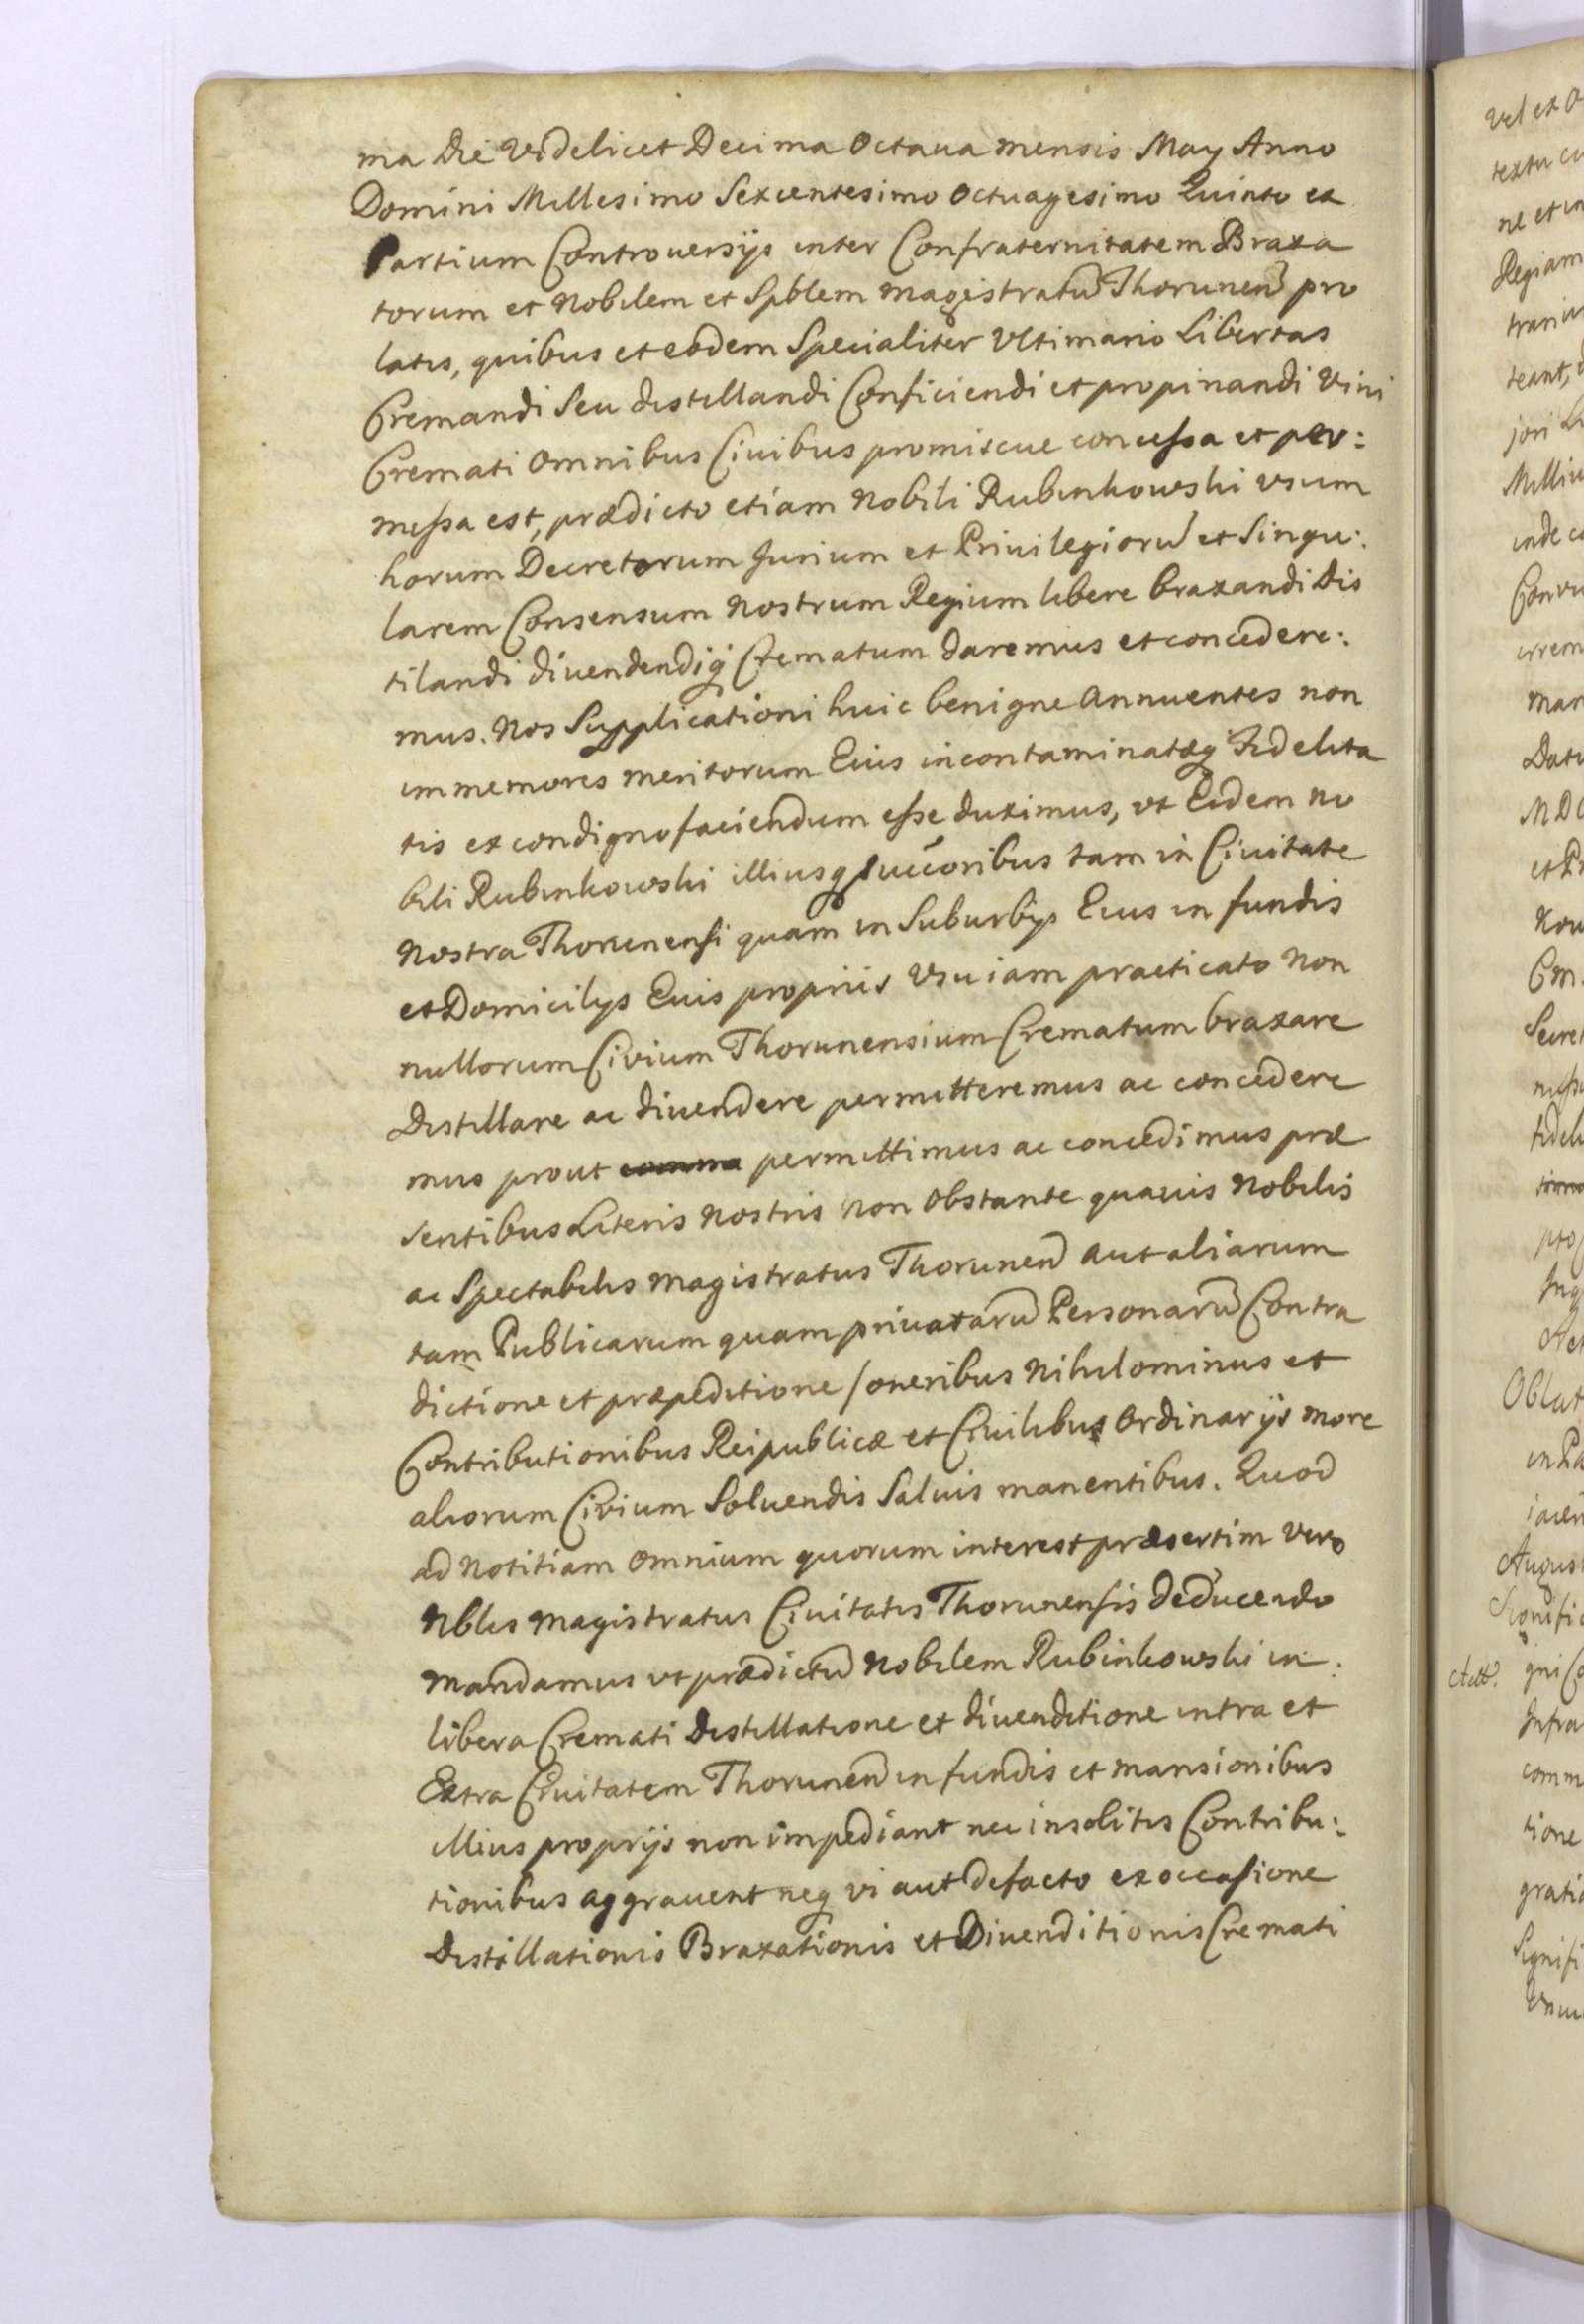 ma Die Videlicet Decima Octaua mensis May Anno
Domini Millesimo Sexcentesimo Octuagesimo Quinto ex
Partium Controuersijs inter Confraternitatem Braxa
torum et Nobilem et Spblem magistratū Thorunen̄ pro
latis, quibus et eodem Specialiter Vltimario Libertas
Cremandi Seu distillandi Conficiendi et propinandi Vini
Cremati Omnibus Ciuibus promiscue concessa et per:
missa est, prædicto etiam Nobili Rubinkowski vsum
horum Decretorum Jurium et Priuilegiorū et Singu:
larem Consensum Nostrum Regium libere braxandi Dis
tilandi diuendendiq̢ Crematum daremus et concedere:
mus. Nos Supplicationi huic benigne Annuentes non
immemores meritorum Eius incontaminatæq̢ Fidelita
tis ex condigno faciendum esse duximus, vt Eidem No
bili Rubinkowski illiusq̢ succ̄oribus tam in Ciuitate
Nostra Thorunensi quam in Suburbijs Eius in fundis
et Domicilijs Euis propriis Vsu iam practicato Non
nullorum Civium Thorunensium Crematum braxare
Distillare ac diuendere permitteremus ac concedere
mus prout permittimus ac concedimus præ
sentibus Literis Nostris Non Obstante quauis Nobilis
ac Spectabilis Magistratus Thorunen̄ aut aliarum
tam Publicarum quam priuatarū Personarū Contra
dictione et præpeditione / oneribus Nihilominus et
Contributionibus Reipublicæ et Ciuilibus Ordinarijs more
aliorum Civium Soluendis Saluis manentibus. Quod
ad Notitiam Omnium quorum interest præsertim Vero
Nblis Magistratus Ciuitatis Thorunensis deducendo
Mandamus vt prædictū Nobilem Rubinkowski in:
libera Cremati Distillatione et diuenditione intra et
Extra Ciuitatem Thorunen̄ in fundis et Mansionibus
illius proprijs non impediant nec insolitis Contribu:
tionibus aggrauent neq̢ vi aut defacto ex occasione
Distillationis Braxationis et Diuenditionis Cremati